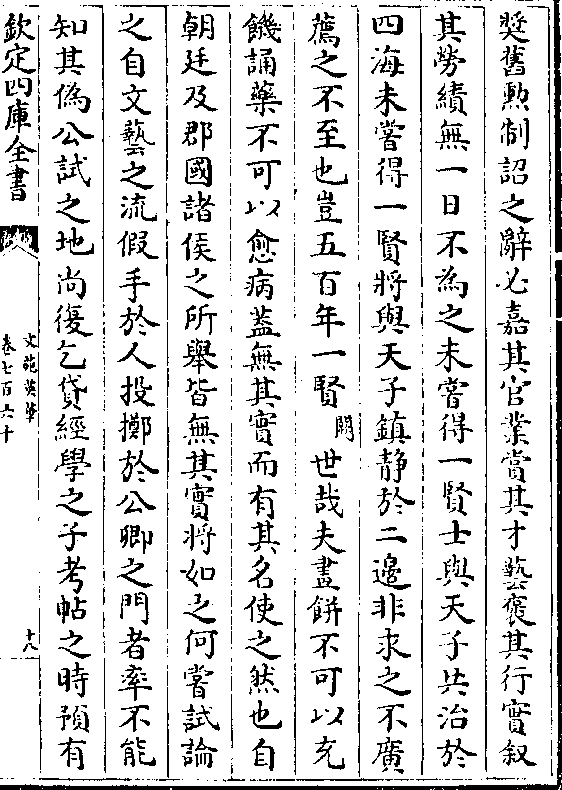 奨舊勲制詔之辭必嘉其官業賞其才藝褒其行實叙
其勞績無一日不為之未嘗得一賢士與天子共治於
四海未嘗得一賢將與天子鎮静於二邊非求之不廣
薦之不至也豈五百年一賢闕世哉夫畫餅不可以充
饑誦藥不可以愈病蓋無其實而有其名使之然也自
朝廷及郡國諸侯之所舉皆無其實將如之何嘗試論
之自文藝之流假手於人投擲於公卿之門者率不能
知其偽公試之地尚復乞貸經學之子考帖之時預有
欽定四庫全書
文苑英華
卷七百六十
十八